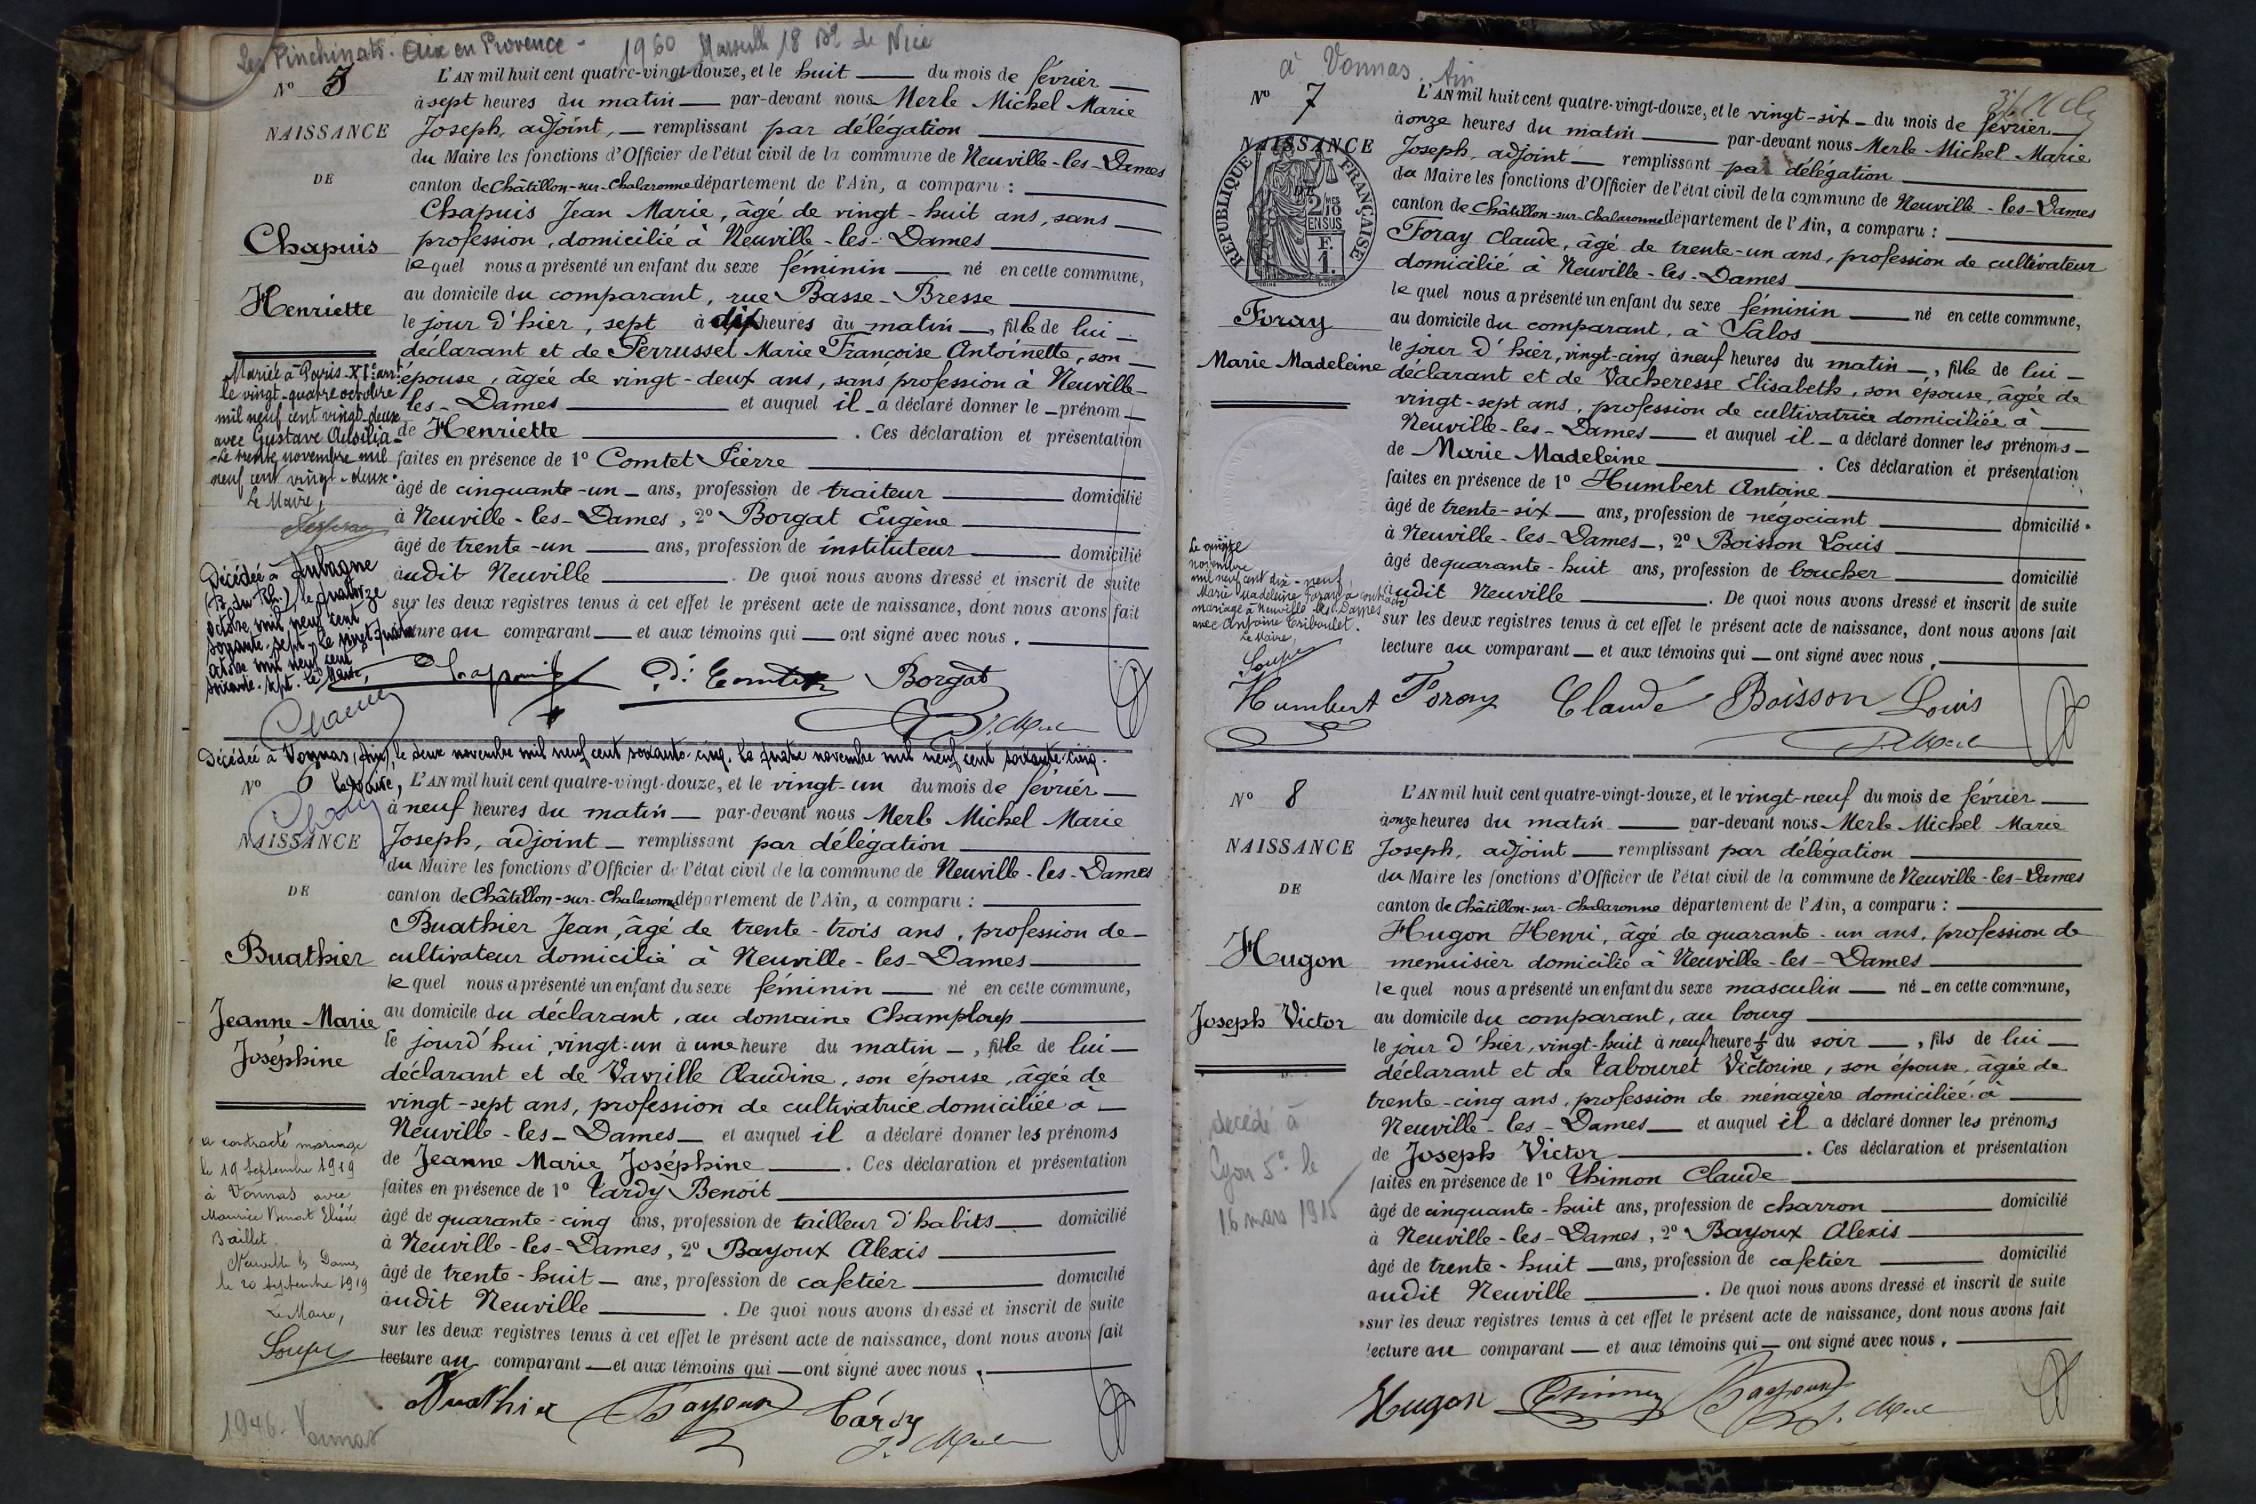 Les Pinchinats. Aix en Provence - 1960 Marseille 18 Bd de Nice
N° 5
NAISSANCE
DE
Chapuis
Henriette
Mariée à Paris-XIe arrt
le vingt-quatre octobre
mil neuf cent vingt-deux
avec Gustave Ausilia
- Le trente novembre mil
neuf cent vingt-deux.
Le Maire,
Décédée à Aubagne
(B. du Rh.), le quatorze
octobre mil neuf cent
soixante-sept. Le vingt-quatre
octobre mil neuf cent
soixante-sept. Le Maire,
L'AN mil huit cent quatre-vingt-douze, et le huit du mois de février
à sept heures du matin par-devant nous Merle Michel Marie
Joseph, adjoint, remplissant par délégation
du Maire les fonctions d'Officier de l'état civil de la commune de Neuville-les-Dames
canton de Châtillon-sur-Chalaronne département de l'Ain, a comparu :
Chapuis Jean Marie, âgé de vingt-huit ans, sans
profession, domicilié à Neuville-les-Dames
lequel nous a présenté un enfant du sexe féminin né en cette commune,
au domicile du comparant, rue Basse-Bresse
le jour d'hier, sept à dix heures du matin, fille de lui
déclarant et de Perrussel Marie Françoise Antoinette, son
épouse, âgée de vingt-deux ans, sans profession à Neuville-
les-Dames et auquel il a déclaré donner le prénom
de Henriette. Ces déclaration et présentation
faites en présence de 1° Comtet Pierre
âgé de cinquante-un ans, profession de traiteur domicilié
à Neuville-les-Dames, 2° Borgat Eugène
âgé de trente-un ans, profession de instituteur domicilié
audit Neuville. De quoi nous avons dressé et inscrit de suite
sur les deux registres tenus à cet effet le présent acte de naissance, dont nous avons fait
lecture au comparant et aux témoins qui ont signé avec nous.
Chapuis P. Comtet Borgat
J. Merle
Décédée à Vonnas (Ain), le deux novembre mil neuf cent soixante-cinq. Le quatre novembre mil neuf cent soixante-cinq.
Le Maire,
N° 6
NAISSANCE
DE
Buathier
Jeanne-Marie
Joséphine
a contracté mariage
le 19 Septembre 1919
à Vonnas avec
Maurice Benoit Elisée
Baillet.
Neuville les Dames,
le 20 septembre 1919
Le Maire,
Soupe
1946. Vonnas
L'AN mil huit cent quatre-vingt-douze, et le vingt-un du mois de février
à neuf heures du matin par-devant nous Merle Michel Marie
Joseph, adjoint remplissant par délégation
du Maire les fonctions d'Officier de l'état civil de la commune de Neuville-les-Dames
canton de Châtillon-sur-Chalaronne département de l'Ain, a comparu :
Buathier Jean, âgé de trente-trois ans, profession de
cultivateur domicilié à Neuville-les-Dames
lequel nous a présenté un enfant du sexe féminin né en cette commune,
au domicile du déclarant, au domaine Champloup
le jourd'hui, vingt-un à une heure du matin, fille de lui
déclarant et de Vavrille Claudine, son épouse, âgée de
vingt-sept ans, profession de cultivatrice domiciliée à
Neuville-les-Dames et auquel il a déclaré donner les prénoms
de Jeanne Marie Joséphine. Ces déclaration et présentation
faites en présence de 1° Tardy Benoit
âgé de quarante-cinq ans, profession de tailleur d'habits domicilié
à Neuville-les-Dames, 2° Bayoux Alexis
âgé de trente-huit ans, profession de cafetier domicilié
audit Neuville. De quoi nous avons dressé et inscrit de suite
sur les deux registres tenus à cet effet le présent acte de naissance, dont nous avons fait
lecture au comparant et aux témoins qui ont signé avec nous.
Buathier Bayoux Tardy
J. Merle
à Vonnas. Ain
N° 7
NAISSANCE
DE
RÉPUBLIQUE FRANÇAISE
2 MES 10 EN SUS
F. 1.
Foray
Marie Madeleine
Le quinze
novembre
mil neuf cent dix-neuf
Marie Madeleine Foray a contracté
mariage à Neuville les Dames
avec Antoine Criboulet.
Le Maire,
Soupe
L'AN mil huit cent quatre-vingt-douze, et le vingt-six du mois de février
à onze heures du matin par-devant nous Merle Michel Marie
Joseph, adjoint remplissant par délégation
du Maire les fonctions d'Officier de l'état civil de la commune de Neuville-les-Dames
canton de Châtillon-sur-Chalaronne département de l'Ain, a comparu :
Foray Claude, âgé de trente-un ans, profession de cultivateur
domicilié à Neuville-les-Dames
lequel nous a présenté un enfant du sexe féminin né en cette commune,
au domicile du comparant, à Salos
le jour d'hier, vingt-cinq à neuf heures du matin, fille de lui
déclarant et de Vacheresse Elisabeth, son épouse, âgée de
vingt-sept ans, profession de cultivatrice domiciliée à
Neuville-les-Dames et auquel il a déclaré donner les prénoms
de Marie Madeleine. Ces déclaration et présentation
faites en présence de 1° Humbert Antoine
âgé de trente-six ans, profession de négociant domicilié
à Neuville-les-Dames, 2° Boisson Louis
âgé de quarante-huit ans, profession de boucher domicilié
audit Neuville. De quoi nous avons dressé et inscrit de suite
sur les deux registres tenus à cet effet le présent acte de naissance, dont nous avons fait
lecture au comparant et aux témoins qui ont signé avec nous.
Humbert Foray Claude Boisson Louis
J. Merle
N° 8
NAISSANCE
DE
Hugon
Joseph Victor
décédé à
Lyon 5e le
16 mars 1915
L'AN mil huit cent quatre-vingt-douze, et le vingt-neuf du mois de février
à onze heures du matin par-devant nous Merle Michel Marie
Joseph, adjoint remplissant par délégation
du Maire les fonctions d'Officier de l'état civil de la commune de Neuville-les-Dames
canton de Châtillon-sur-Chalaronne département de l'Ain, a comparu :
Hugon Henri, âgé de quarante-un ans, profession de
menuisier domicilié à Neuville-les-Dames
lequel nous a présenté un enfant du sexe masculin né en cette commune,
au domicile du comparant, au bourg
le jour d'hier, vingt-huit à neuf heure ½ du soir, fils de lui
déclarant et de Tabouret Victorine, son épouse, âgée de
trente-cinq ans, profession de ménagère domiciliée à
Neuville-les-Dames et auquel il a déclaré donner les prénoms
de Joseph Victor. Ces déclaration et présentation
faites en présence de 1° Thimon Claude
âgé de cinquante-huit ans, profession de charron domicilié
à Neuville-les-Dames, 2° Bayoux Alexis
âgé de trente-huit ans, profession de cafetier domicilié
audit Neuville. De quoi nous avons dressé et inscrit de suite
sur les deux registres tenus à cet effet le présent acte de naissance, dont nous avons fait
lecture au comparant et aux témoins qui ont signé avec nous.
Hugon Thimon Bayoux J. Merle